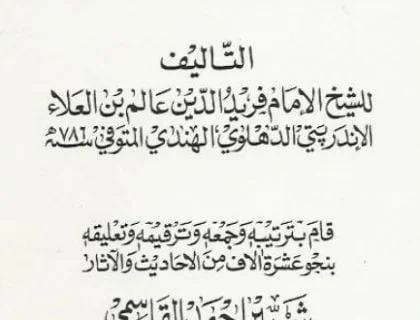 التّاليف
للشيخ الإمام فريدُ الدّين عالم بن العلاء
الإندربتي الدهلوي الهندي المتوفى سنة ٧٨٦ھ
قام بترتيبه وجمعه وترقيمه وتعليقه
بنحو عشرة الاف من الاحاديث والآثار
شبير احمد القاسمي